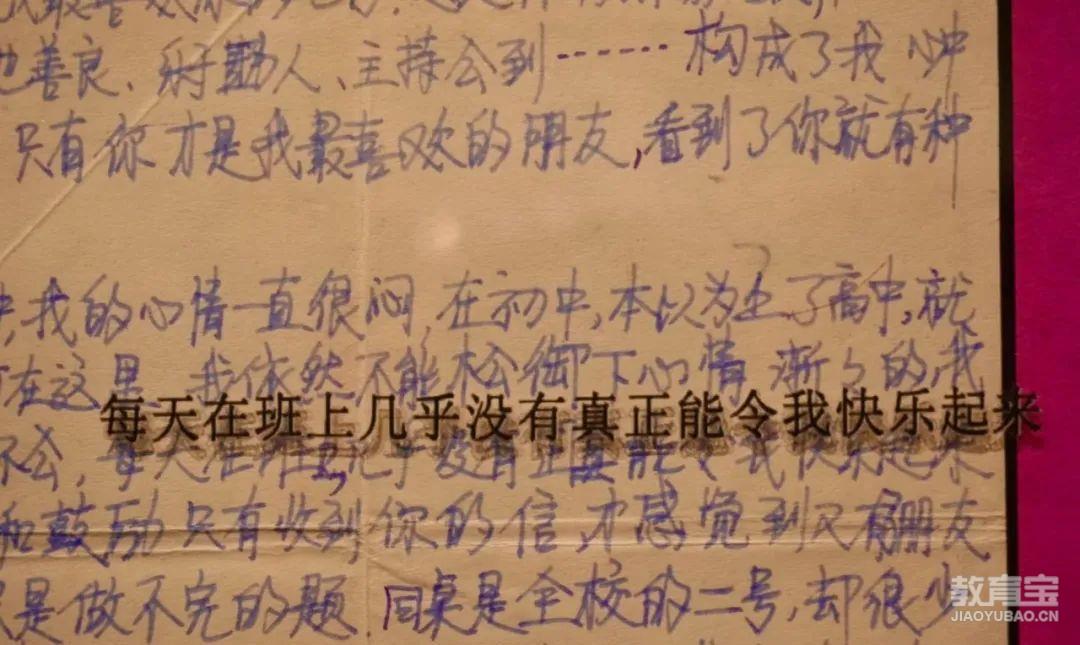 最喜欢
善良、乐于助人、主持会到……构成了我心中
只有你才是我最喜欢的朋友,看到了你就有种
我的心情一直很闷,在初中,本以为上了高中,就
在这里,我依然不能松御下心情,渐々的,我
每天在班上几乎没有真正能令我快乐起来
不会,每天在班上几乎没有正真能令我快乐起来
和鼓励,只有收到你的信,才感觉到又有朋友
是做不完的题,同桌是全校的二号,却很少
教育宝
JIAOYUBAO.CN